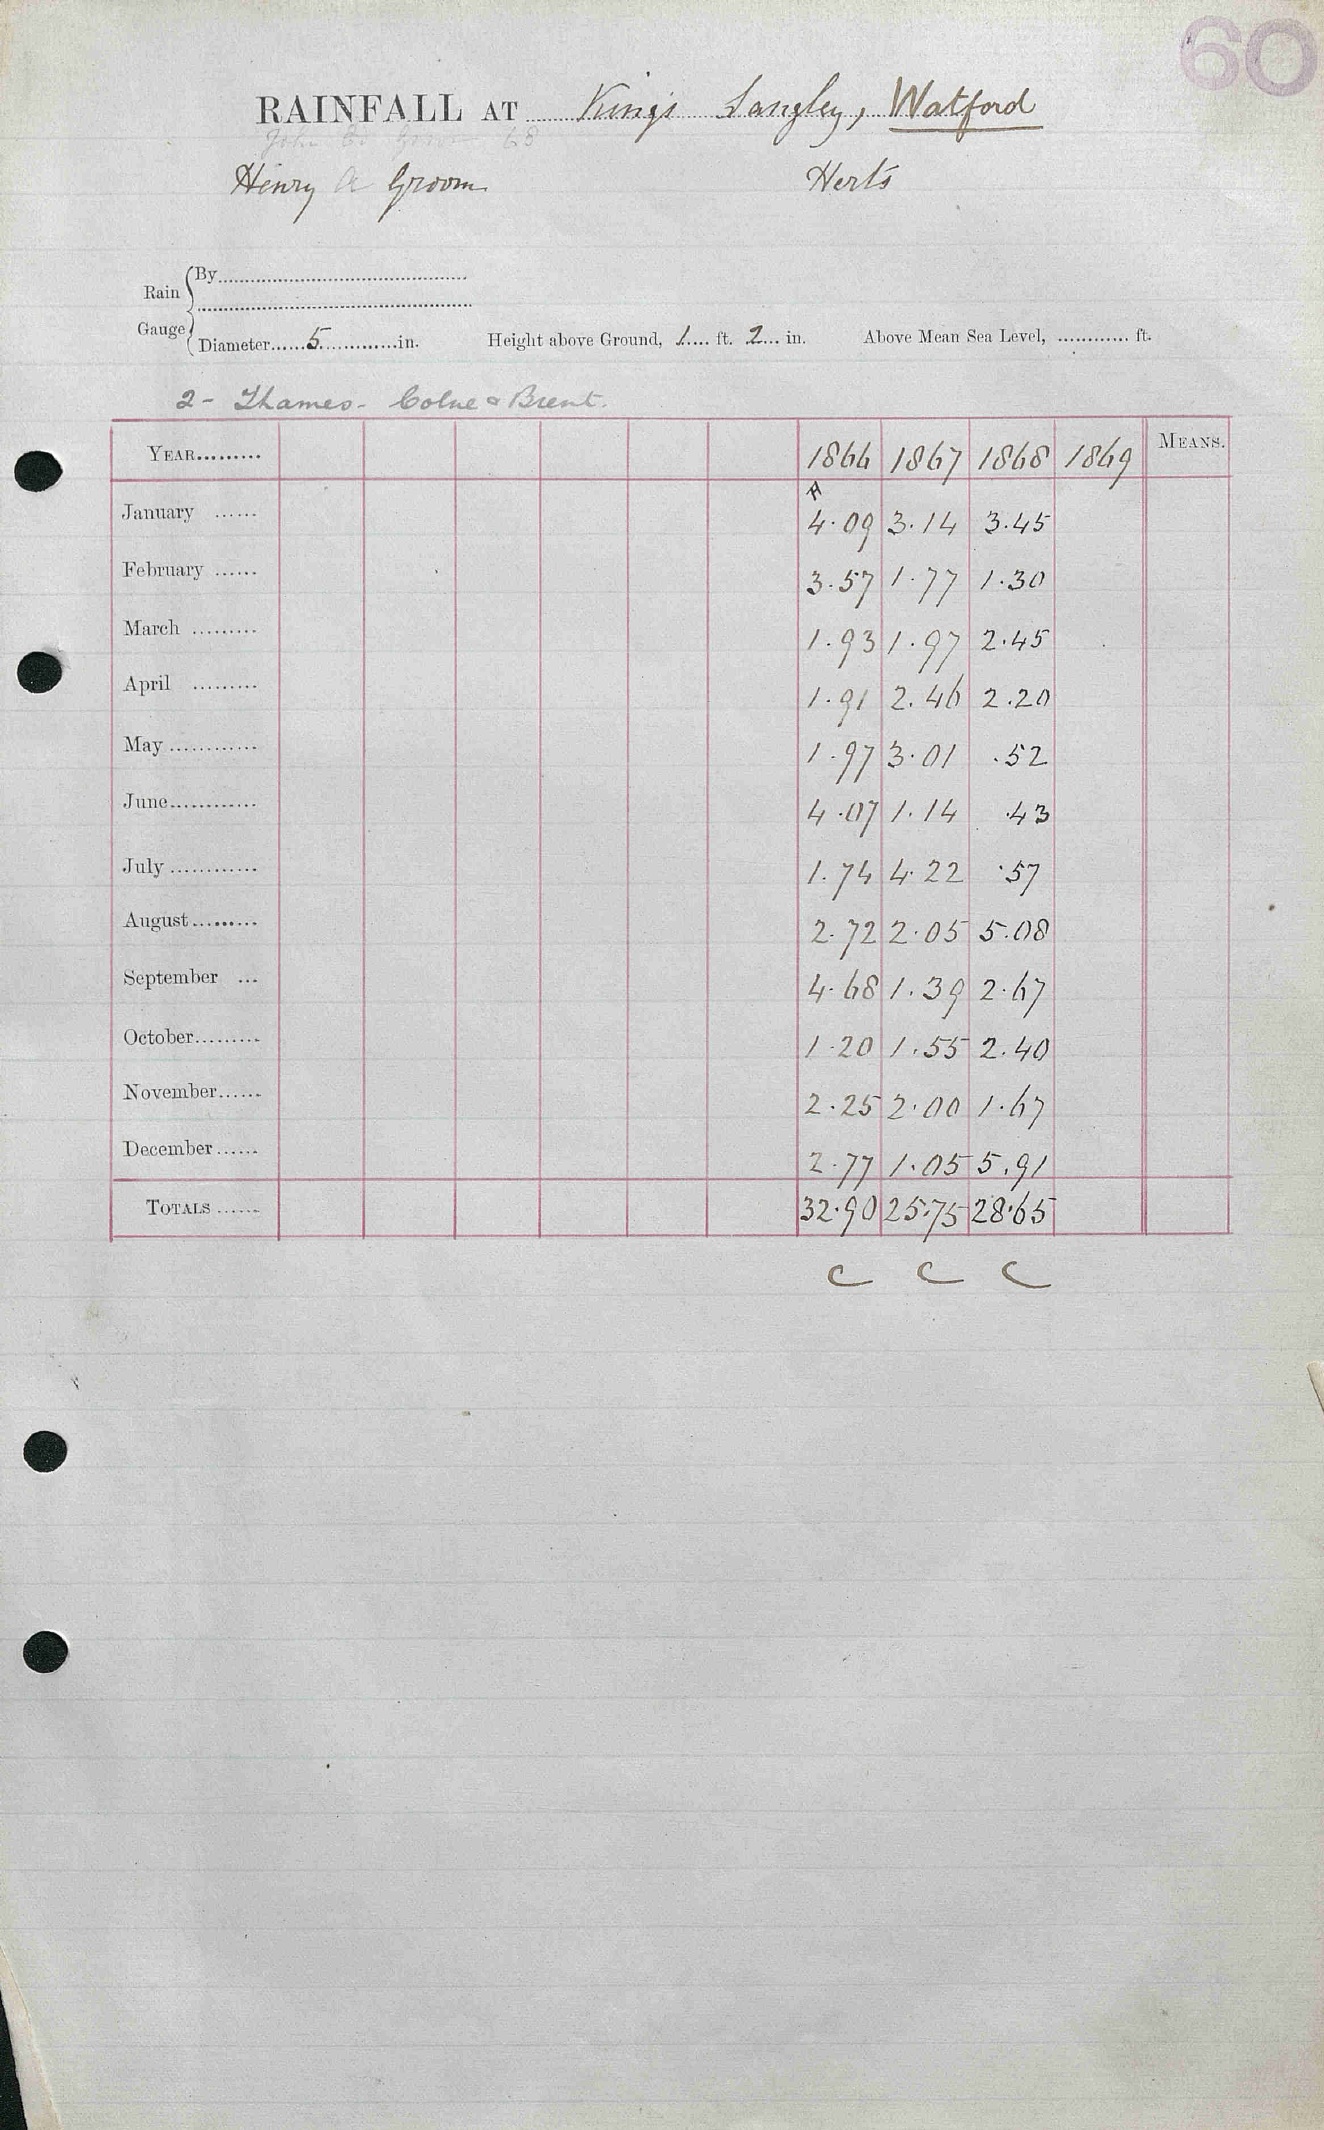 60
RAINFALL AT Kings Langley, Watford
John 68
Henry A Groom Herts
Rain Gauge { By
Diameter 5 in. Height above Ground, 1 ft. 2 in. Above Mean Sea Level, ft.
2 - Thames - Colne & Brent.
YEAR 1866 1867 1868 1869 MEANS.
A
January 4.09 3.14 3.45
February 3.57 1.77 1.30
March 1.93 1.97 2.45
April 1.91 2.46 2.20
May 1.97 3.01 .52
June 4.07 1.14 .43
July 1.74 4.22 .57
August 2.72 2.05 5.08
September 4.68 1.39 2.67
October 1.20 1.55 2.40
November 2.25 2.00 1.67
December 2.77 1.05 5.91
TOTALS 32.90 25.75 28.65
C C C